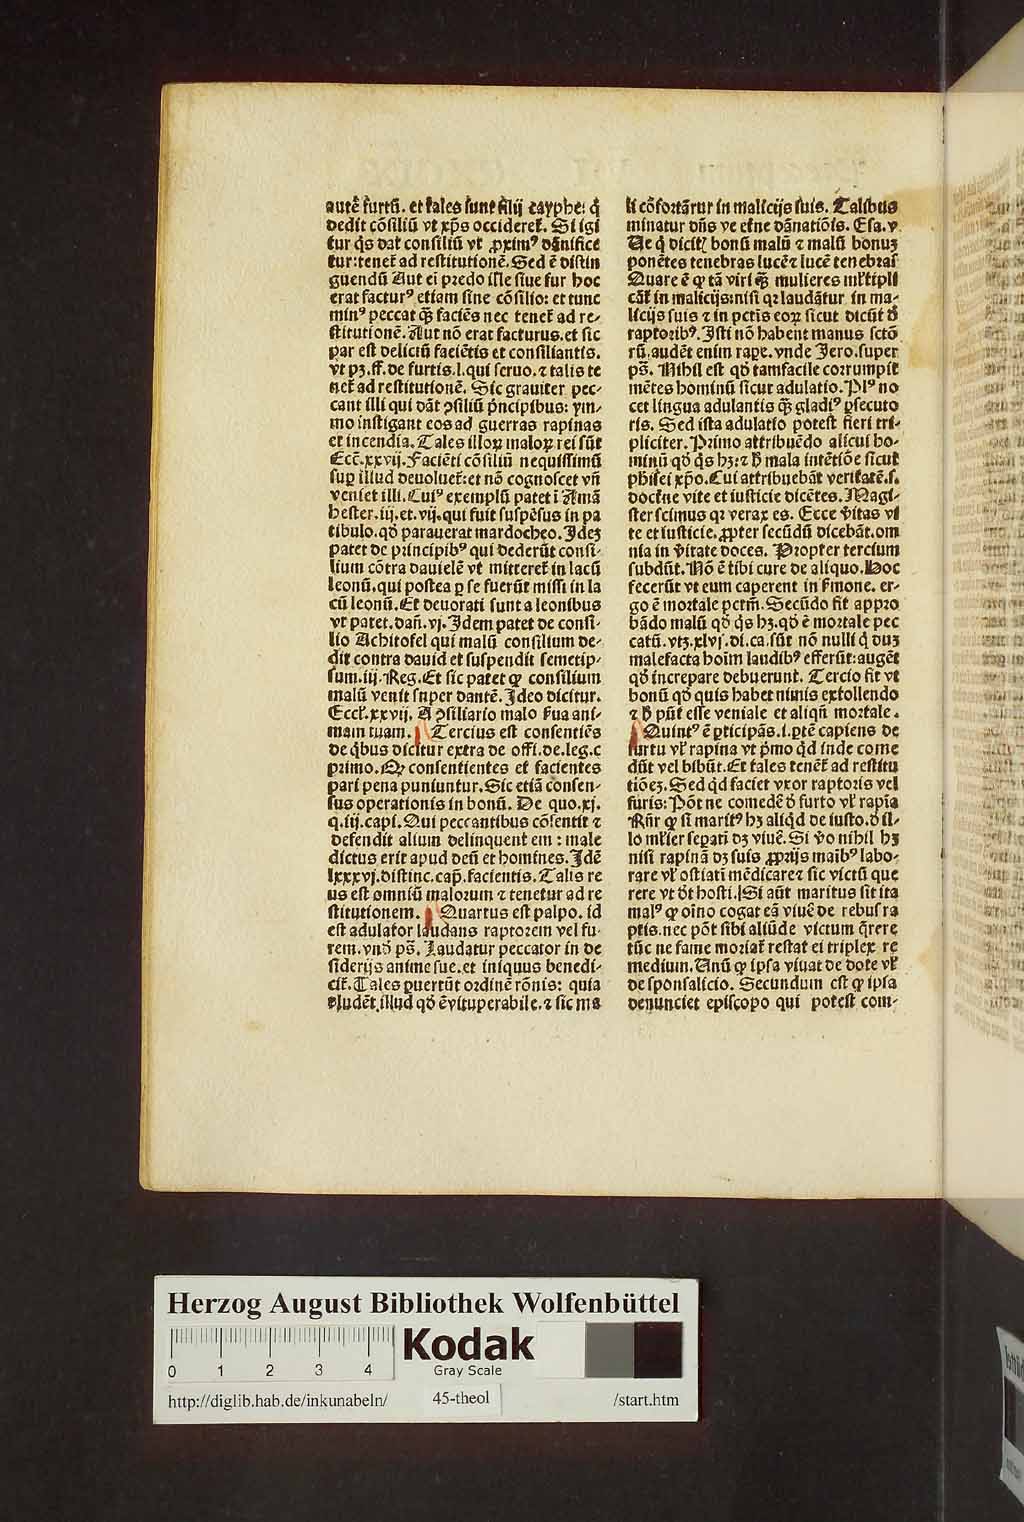 autē furtū. et tales sunt filij cayphe: q̇
dedit cōsiliū vt xp̄s occideret᷑. Si igi
tur q̇s dat consiliū vt ꝓximꝰ dānifice
tur: tenet᷑ ad restitutionē. Sed ē distin
guendū Aut ei predo ille siue fur hoc
erat facturꝰ etiam sine cōsilio: et tunc
minꝰ peccat q̄ꝫ faciēs nec tenet᷑ ad re-
stitutionē. Aut nō erat facturus. et sic
par est delictū faciētis et consiliantis.
vt pꝫ. ff. de furtis. l. qui seruo. ⁊ talis te
net᷑ ad restitutionē. Sic grauiter pec-
cant illi qui dāt ꝯsiliū p̄ncipibus: ym-
mo instigant eos ad guerras rapinas
et incendia. Tales illoꝝ maloꝝ rei sūt
Ecc̄. xxvij. Faciēti cōsiliū nequissimū
suꝑ illud deuoluet᷑: et nō cognoscet vn̄
veniet illi. Cuiꝰ exemplū patet ī Amā
hester. iij. et. vij. qui fuit suspēsus in pa
tibulo. qd̓ parauerat mardocheo. Ideꝫ
patet de principibꝰ qui dederūt consi-
lium cōtra danielē vt mitteret᷑ in lacū
leonū. qui postea ꝑ se fuerūt missi in la
cū leonū. Et deuorati sunt a leonibus
vt patet. dan̄. vj. Idem patet de consi-
lio Achitofel qui malū consilium de-
dit contra dauid et suspendit semetip-
sum. iij. Reg. Et sic patet ꝙ consilium
malū venit super dantē. Ideo dicitur.
Eccl̓. xxvij. A ꝯsiliario malo s̓ua ani-
mam tuam. Tercius est consentiēs
de q̇bus dicitur extra de offi. de. leg. c
primo. Ꝙ consentientes et facientes
pari pena puniuntur. Sic etiā consen-
sus operationis in bonū. De quo. xj.
q. iij. capi. Qui peccantibus cōsentit ⁊
defendit alium delinquentem: male
dictus erit apud deū et homines. Idē
lxxxvj. distinc. cap̄. facientis. Talis re
us est omniū malorum ⁊ tenetur ad re
stitutionem. Quartus est palpo. id
est adulator laudans raptorem vel fu-
rem. vnd̓ ps̄. Laudatur peccator in de
siderijs anime sue. et iniquus benedi-
cit᷑. Tales ꝑuertūt ordinē rōnis: quia
eludēt illud qd̓ ē vituperabile. ⁊ sic ma
li cōfortātur in malicijs suis. Talibus
minatur dn̄s ve et̓ne dānatiōis. Esa. v.
Ue q̇ dicitꝭ bonū malū ⁊ malū bonuꝫ
ponētes tenebras lucē ⁊ lucē tenebras
Quare ē ꝙ tā viri q̄ꝫ mulieres ml̓tipli
cāt᷑ in malicijs: nisi qꝛ laudātur in ma-
licijs suis ⁊ in pctīs eoꝝ sicut dicūt d̓
raptoribꝰ. Isti nō habent manus sctō
rū. audēt enim rape̓. vnde Jero. super
ps̄. Nihil est qd̓ tamfacile corrumpit
mētes hominū sicut adulatio. Plꝰ no
cet lingua adulantis q̄ꝫ gladiꝰ ꝑsecuto
ris. Sed ista adulatio potest fieri tri-
pliciter. Primo attribuēdo alicui ho-
minū qd̓ q̇s hꝫ: ⁊ h̓ mala intētiōe sicut
phisei xp̄o. Cui attribuebāt veritatē. s.
doctrīe vite et iusticie dicētes. Magi-
ster scimus qꝛ verax es. Ecce v̓itas vi
te et iusticie. ꝓpter secūdū dicebāt. om
nia in v̓itate doces. Propter tercium
subdūt. Nō ē tibi cure de aliquo. Hoc
fecerūt vt eum caperent in s̓mone. er-
go ē mortale pctm̄. Secūdo fit appro
bādo malū qd̓ q̇s hꝫ. qd̓ ē mortale pec
catū. vtꝫ. xlvj. di. ca. sūt nō nulli q̇ duꝫ
malefacta hoīm laudibꝰ efferūt: augēt
qd̓ increpare debuerunt. Tercio fit vt
bonū qd̓ quis habet nimis extollendo
⁊ h̓ pūt esse veniale et aliqn̄ mortale.
Quintꝰ ē ꝑticipās. i. ꝑtē capiens de
furtu vl̓ rapina vt p̄mo q̇d inde come
dūt vel bibūt. Et tales tenēt᷑ ad restitu
tiōeꝫ. Sed q̇d faciet vxor raptoris vel
furis: Pōt ne comedē d̓ furto vl̓ rapīa
Rn̄r ꝙ si maritꝰ hꝫ aliq̇d de iusto. d̓ il-
lo ml̓ier separi dꝫ viuē. Si v̓o nihil hꝫ
nisi rapinā dꝫ suis ꝓprijs maībꝰ labo-
rare vl̓ ostiatī mēdicare ⁊ sic victū que
rere vt d̓t hosti. Si aūt maritus sit ita
malꝰ ꝙ oīno cogat eā viuē de rebus ra
ptis. nec pōt sibi aliūde victum q̄rere
tūc ne fame moriat᷑ restat ei triplex re
medium. Unū ꝙ ipsa viuat de dote vl̓
de sponsalicio. Secundum est ꝙ ipsa
denunciet episcopo qui potest com-
Herzog August Bibliothek Wolfenbüttel
0 1 2 3 4
Kodak
Gray Scale
http://diglib.hab.de/inkunabeln/ 45-theol /start.htm